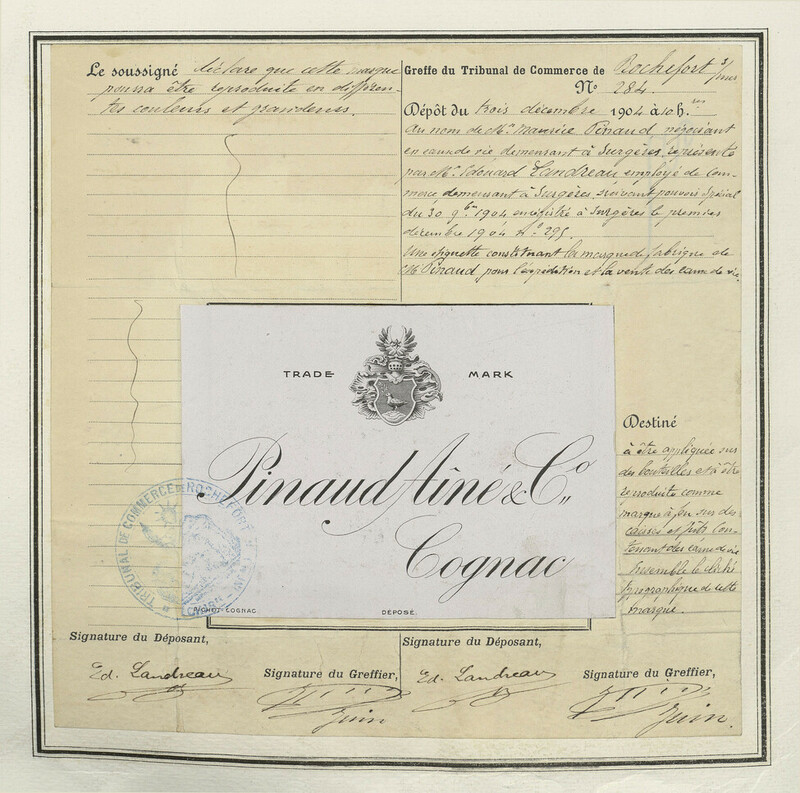 Le soussigné déclare que cette marque
pourra être reproduite en différen-
tes couleurs et grandeurs.
Greffe du Tribunal de Commerce de Rochefort s/mer
No 284.
Dépôt du trois décembre 1904 à 10 h.
Au nom de Mr. Maurice Pinaud négociant
en eau de vie demeurant à Surgères, représenté
par Mr. Edouard Landreau employé de Com-
merce demeurant à Surgères, suivant pouvoir spécial
du 30 9bre 1904 enregistré à Surgères le premier
décembre 1904 no 295.
Une étiquette constituant la marque de fabrique de
Mr Pinaud pour l'expédition et la vente des eaux de vie.
TRADE MARK
Pinaud Aîné & Co
Cognac
DÉPOSÉ.
COGNAC
TRIBUNAL DE COMMERCE DE ROCHEFORT
Destiné
à être appliquée sur
des bouteilles et à être
reproduite comme
marque à feu sur des
caisses et fûts con-
tenant des eaux de vie
Ensemble le cliché
typographique de cette
marque.
Signature du Déposant,
Ed. Landreau
Signature du Greffier,
Juin
Signature du Déposant,
Ed. Landreau
Signature du Greffier,
Juin.